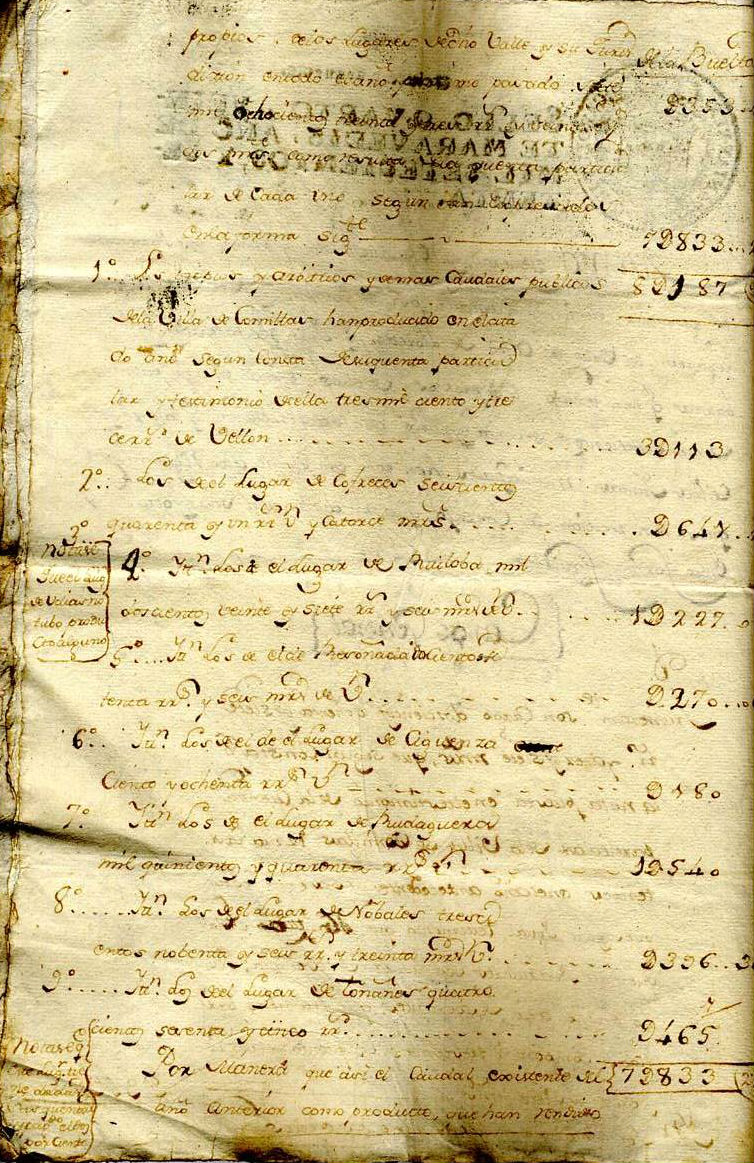 propios, de los Lugares de dho Valle y su Juris
De la Buelta
diccion en todo el año proximo pasado siete
D353
mil ochocientos treinta y tres rr.s y
dos mrs como resulta de la quenta particu
lar de cada uno, segun van expresados
en la forma sig.te
7D833
8D187
1.º Los propios y arbitrios y demas Caudales publicos
de la Villa de Comillas han producido en el cita
do año segun consta de su quenta particu
lar y testimonio de ella tres mil ciento y tre
ce rr.s de Vellon
3D113
2.º Los de el Lugar de Cofreces seiscientos
quarenta y un rr.s Vn y catorce mrs.
D641
3.º
Notase
que el Lug.r
de Udias no
tubo produ
cto alguno
4.º Ytn. Los de el Lugar de Ruiloba mil
doscientos veinte y siete rr.s y seis mrs de Vn.
1D227
5.º Ytn Los de el de Ruseñada doscientos se
tenta rr.s y seis mrs de Vn
D270
6.º Ytn. Los de el de el Lugar de Ciguenza
Ciento y ochenta rr.s Vn
D180
7.º Ytn Los de el Lugar de Rudaguera
mil quinientos y quarenta rr.s Vn
1D540
8.º Ytn. Los de el Lugar de Nobales tresci
entos nobenta y seis rr. y treinta mrs Vn.
D396
9.º Ytn. Los de el Lugar de Toñanes quatro
cientos sesenta y cinco rr.s
D465
Por Manera que asi el Caudal existente del
7D833
año anterior como producto, que han rendido
Notase q